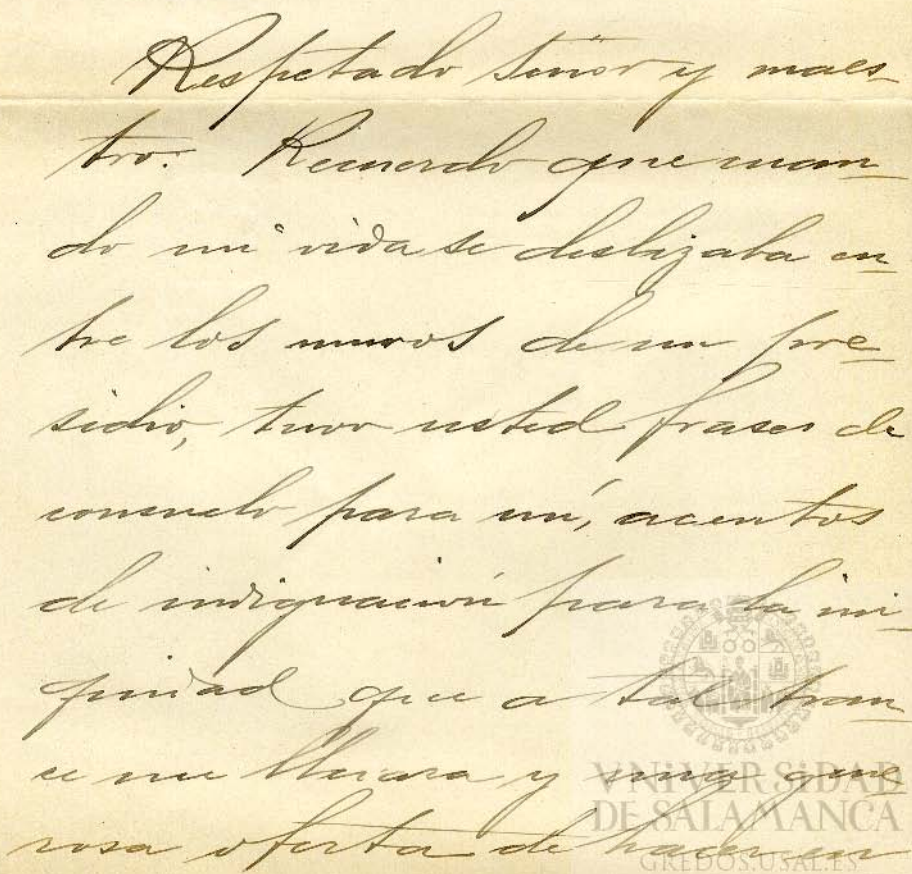 Respetado Señor y maes-
tro: Recuerdo que cuan-
do mi vida se deslizaba en-
tre los muros de un pre-
sidio, tuvo usted frases de
consuelo para mí, acentos
de indignación para la ini-
quidad que a tal tran-
ce me llevara y una gene-
rosa oferta de hacer en
VNiVERSiDAD
DE SALAMANCA
GREDOS.USAL.ES